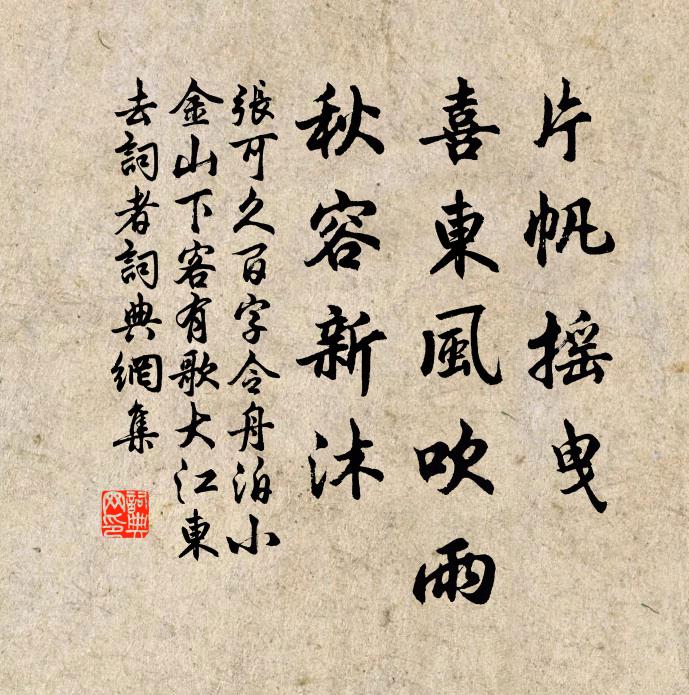 片帆摇曳
喜東風吹雨
秋容新沐
張可久百字令舟泊小
金山下客有歌大江東
去詞者詞典網集
詞典
网印